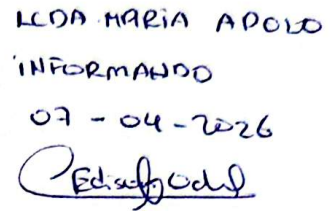 LCDA MARIA APOLO
INFORMANDO
07 - 04 - 2026